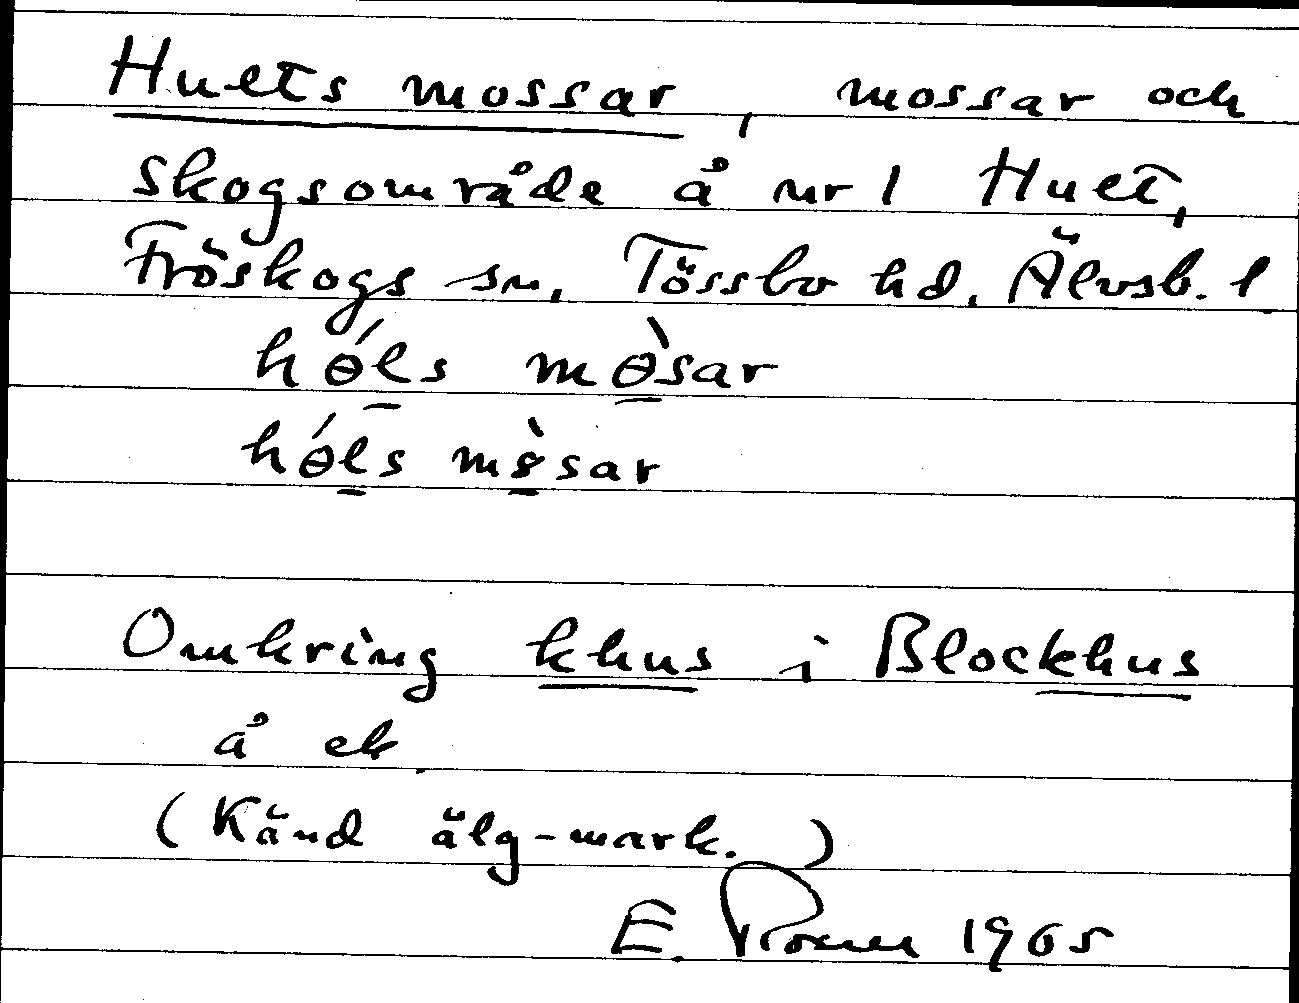 Huets mossar, mossar och
skogsområde å nr 1 Huet,
Fröskogs sn. Tössbo hd. Älvsb. l
hɵ́ls mɵ̀sar
hɵ́ls m sar
Omkring khus i Blockhus
å ek.
(Känd älg-mark.)
E. 1965